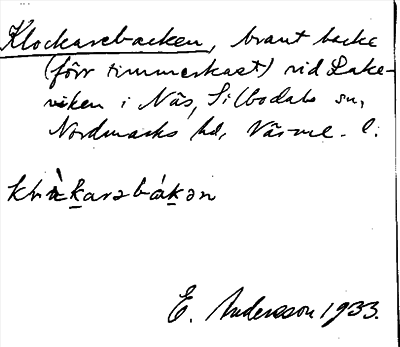 Klockarebacken, brant backe
(förr timmerkast) vid Lake-
viken i Näs, Silbodals sn,
Nordmarks hd, Värml. l:
E. Andersson 1933.